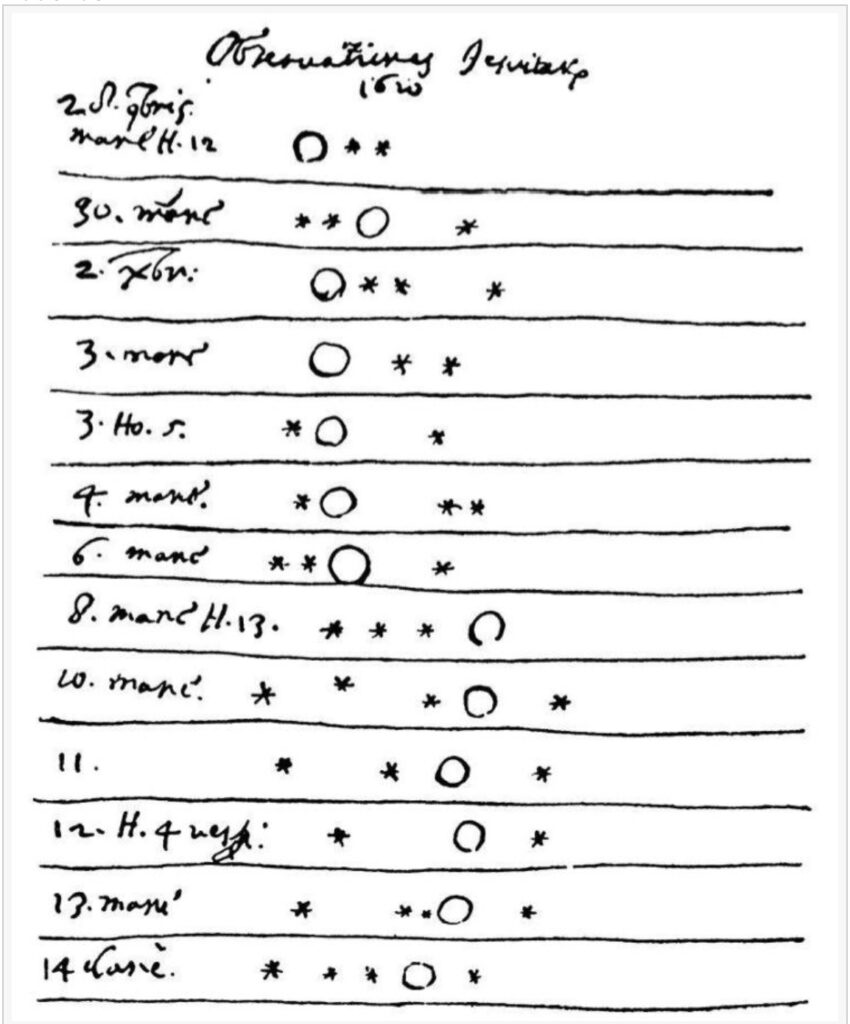 Observationes Jesuitarum
1610
2. S. 9bris.
mane H. 12
30. mane
2. xbr:
3. mane
3. Ho. 5.
4. mane.
6. mane
8. mane H. 13.
10. mane.
11.
12. H. 4 vesp:
13. mane
14